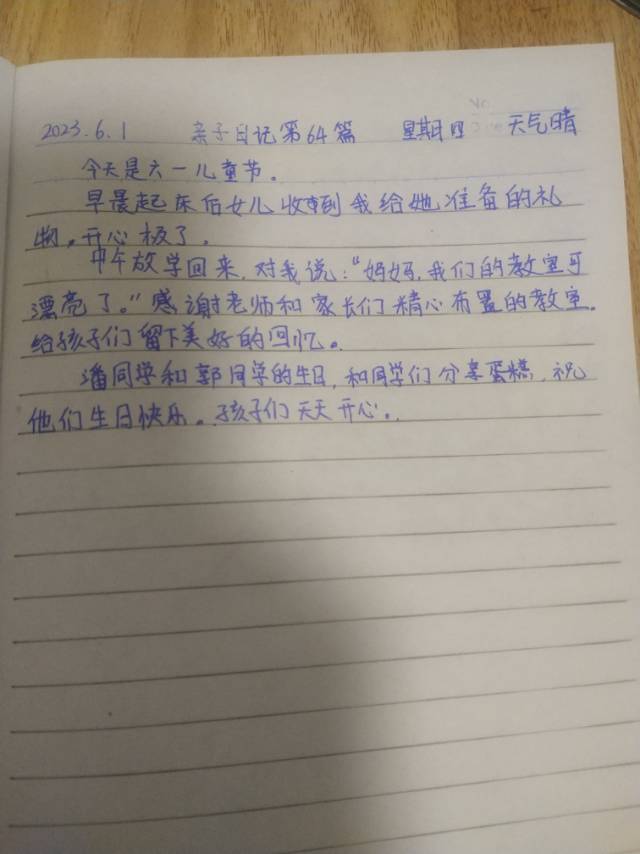 2023.6.1 亲子日记第64篇 星期四 天气晴
今天是六一儿童节。
早晨起床后女儿收到我给她准备的礼
物,开心极了。
中午放学回来,对我说:“妈妈,我们的教室可
漂亮了。”感谢老师和家长们精心布置的教室,
给孩子们留下美好的回忆。
潘同学和郭同学的生日,和同学们分享蛋糕,祝
他们生日快乐。孩子们天天开心。